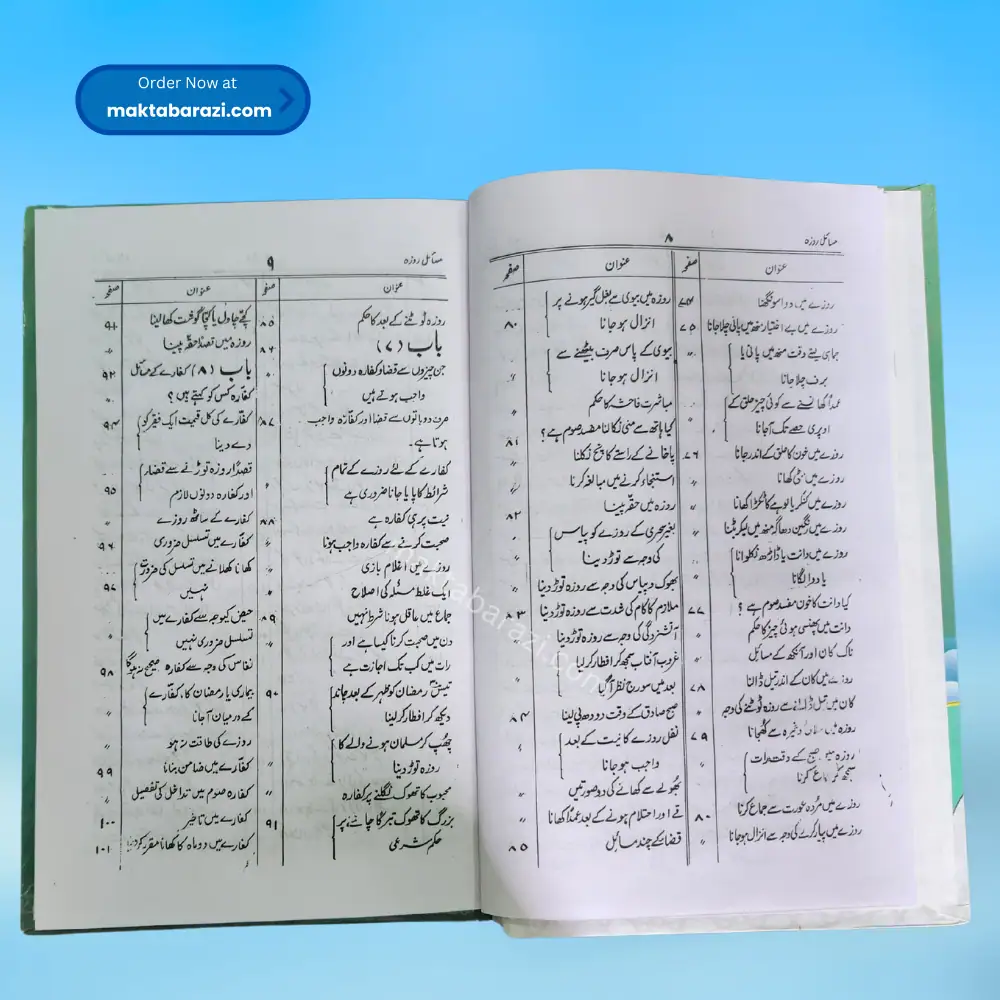 Order Now at
maktabarazi.com
مسائل روزہ
۸
عنوان
صفحہ
عنوان
صفحہ
روزے میں دوا سونگھنا ۷۴
روزے میں بے اختیار منھ میں پانی چلا جانا ۷۵
جماہی لیتے وقت منھ میں پانی یا
برف چلا جانا
عمداً کھانسنے سے کوئی چیز حلق کے
اوپری حصے تک آجانا
روزے میں خون کا حلق کے اندر جانا ۷۶
روزے میں مٹی کھانا
روزے میں کنکر یا لوہے کا ٹکڑا کھانا
روزے میں رنگین دھاگہ منھ میں لیکر بٹنا
روزے میں دانت یا ڈاڑھ نکلوانا
یا دوا لگانا
کیا دانت کا خون مفسد صوم ہے ؟ ۷۷
دانت میں پھنسی ہوئی چیز کا حکم
ناک کان اور آنکھ کے مسائل
روزے میں کان کے اندر تیل ڈالنا ۷۸
کان میں تیل ڈالنے سے روزہ ٹوٹنے کی وجہ
روزہ میں وغیرہ سے کھجانا ۷۹
روزہ میں صبح کے وقت رات
سمجھ کر جماع کرنا
روزے میں مردہ عورت سے جماع کرنا ۸۰
روزے میں پیار کرنے کی وجہ سے انزال ہو جانا 〃
روزہ میں بیوی سے بغل گیر ہونے پر
انزال ہو جانا ۸۰
بیوی کے پاس صرف بیٹھنے سے
انزال ہو جانا 〃
مباشرت فاحشہ کا حکم 〃
کیا ہاتھ سے منی نکالنا مفسد صوم ہے ؟ ۸۱
پاخانے کے راستے کا کنچ نکلنا 〃
استنجاء کرنے میں مبالغہ کرنا 〃
روزہ میں حقہ پینا ۸۲
بغیر سحری کے روزے کو پیاس
کی وجہ سے توڑ دینا
بھوک و پیاس کی وجہ سے روزہ توڑ دینا 〃
ملازم کا کام کی شدت سے روزہ توڑ دینا ۸۳
آتشزدگی کی وجہ سے روزہ توڑ دینا
غروب آفتاب سمجھ کر افطار کر لیا
بعد میں سورج نظر آگیا
صبح صادق کے وقت دودھ پی لینا ۸۴
نفل روزے کا نیت کے بعد
واجب ہو جانا
بھولے سے کھانے کی دو صورتیں
قے اور احتلام ہونے کے بعد عمداً کھانا
قضا کے چند مسائل ۸۵
مسائل روزہ
۹
عنوان
صفحہ
عنوان
صفحہ
روزہ ٹوٹنے کے بعد کا حکم ۸۵
باب (۷) ۸۶
جن چیزوں سے قضا و کفارہ دونوں
واجب ہوتے ہیں
صرف دو باتوں سے قضا اور کفارہ واجب ۸۷
ہوتا ہے۔
کفارے کے لئے روزے کے تمام
شرائط کا پایا جانا ضروری ہے
نیت پر ہی کفارہ ہے ۸۸
صحبت کرنے سے کفارہ واجب ہونا 〃
روزے میں اغلام بازی 〃
ایک غلط مسئلہ کی اصلاح
جماع میں عاقل ہونا شرط نہیں ۸۹
دن میں صحبت کرنا کیسا ہے اور
رات میں کب تک اجازت ہے
تیس رمضان کو ظہر کے بعد چاند ۹۰
دیکھ کر افطار کر لینا
چھپ کر مسلمان ہونے والے کا
روزہ توڑ دینا 〃
محبوب کا تھوک نگلنے پر کفارہ 〃
بزرگ کا تھوک تبرکاً چاٹنے پر ۹۱
حکم شرعی
کچے چاول یا کچا گوشت کھا لینا ۹۱
روزہ میں قصداً حقہ پینا 〃
باب (۸) کفارے کے مسائل ۹۲
کفارہ کس کو کہتے ہیں ؟
کفارے کی کل قیمت ایک فقیر کو ۹۴
دے دینا
قصداً روزہ توڑنے سے قضاء
اور کفارہ دونوں لازم ۹۵
کفارے کے ساٹھ روزے 〃
کفارے میں تسلسل ضروری ۹۶
کھانا کھلانے میں تسلسل کی ضرورت
نہیں ۹۷
حیض کیوجہ سے کفارے میں
تسلسل ضروری نہیں
نفاس کی وجہ سے کفارہ صحیح نہ ہوگا ۹۸
بیماری یا رمضان کا، کفارے
کے درمیان آجانا
روزے کی طاقت نہ ہو 〃
کفارے میں ضامن بنانا ۹۹
کفارہ صوم میں تداخل کی تفصیل 〃
کفارے میں تاخیر ۱۰۰
کفارے میں دو ماہ کا کھانا مقرر کر دینا ۱۰۱
maktabarazi.com